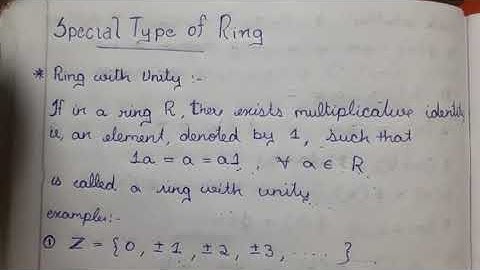 Special Type of Ring
* Ring with Unity :-
If in a ring R, there exists multiplicative identity
ie, an element, denoted by 1, such that
1a = a = a1 , ∀ a ∈ R
is called a ring with unity
example:-
① Z = { 0, ±1, ±2, ±3, ..... }